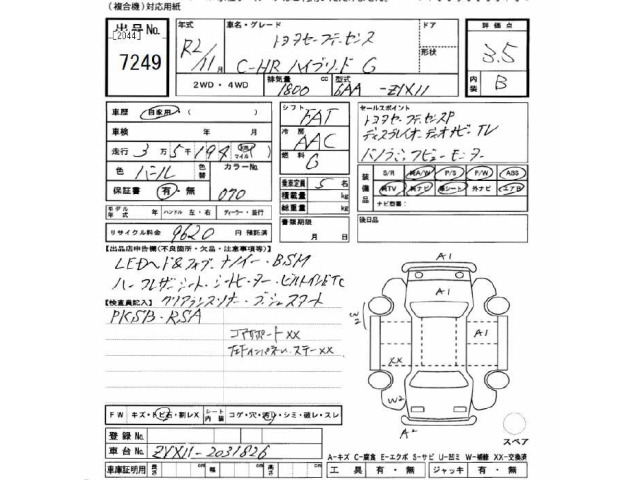 (複合機)対応用紙
出品No.
[2044]
7249
年式
R2/11月
車名・グレード
トヨタセーフティセンス
C-HR ハイブリッド G
ドア
形状
評価点
3.5
内装
B
2WD・4WD
排気量
1800
cc
型式
6AA
-ZYX11
車歴
自家用
車検
年 月
走行
3万5千194
マイル
色
パール
色替
カラーNo.
070
保証書
有・無
モデル年式
年 ハンドル 左・右 ディーラー・並行
リサイクル料金 9620 円 預託済
シフト
FAT
冷房
AAC
燃料
G
乗車定員 5 名
積載量 kg
総重量 kg
書類期限
月 日
セールスポイント
トヨタセーフティセンスP
ディスプレイオーディオナビ・TV
パノラミックビューモニター
装備品
S/R 純A/W P/S P/W ABS
純TV 純ナビ 革シート 外ナビ エアB
ナビ型番:
後日品
【出品店申告欄(不良箇所・欠品・注意事項等)】
LEDヘッド&フォグ・ナノイー・BSM
ハーフレザーシート・シートヒーター・ビルトインETC
【検査員記入】クリアランスソナー・プッシュスタート
PKSB・RSA
コアサポートXX
XX
A1
A1
A1
XX
W2
A2
スペア
FW キズ・トビ石・割レX
シート内装
コゲ・穴・汚レ・シミ・破レ・スレ
登録No.
車台No. ZYX11-2031826
A-キズ C-腐食 E-エクボ S-サビ U-凹ミ W-補修 XX-交換済
車庫証明用 長さ cm 幅 cm 高さ cm
工具 有・無 ジャッキ 有・無